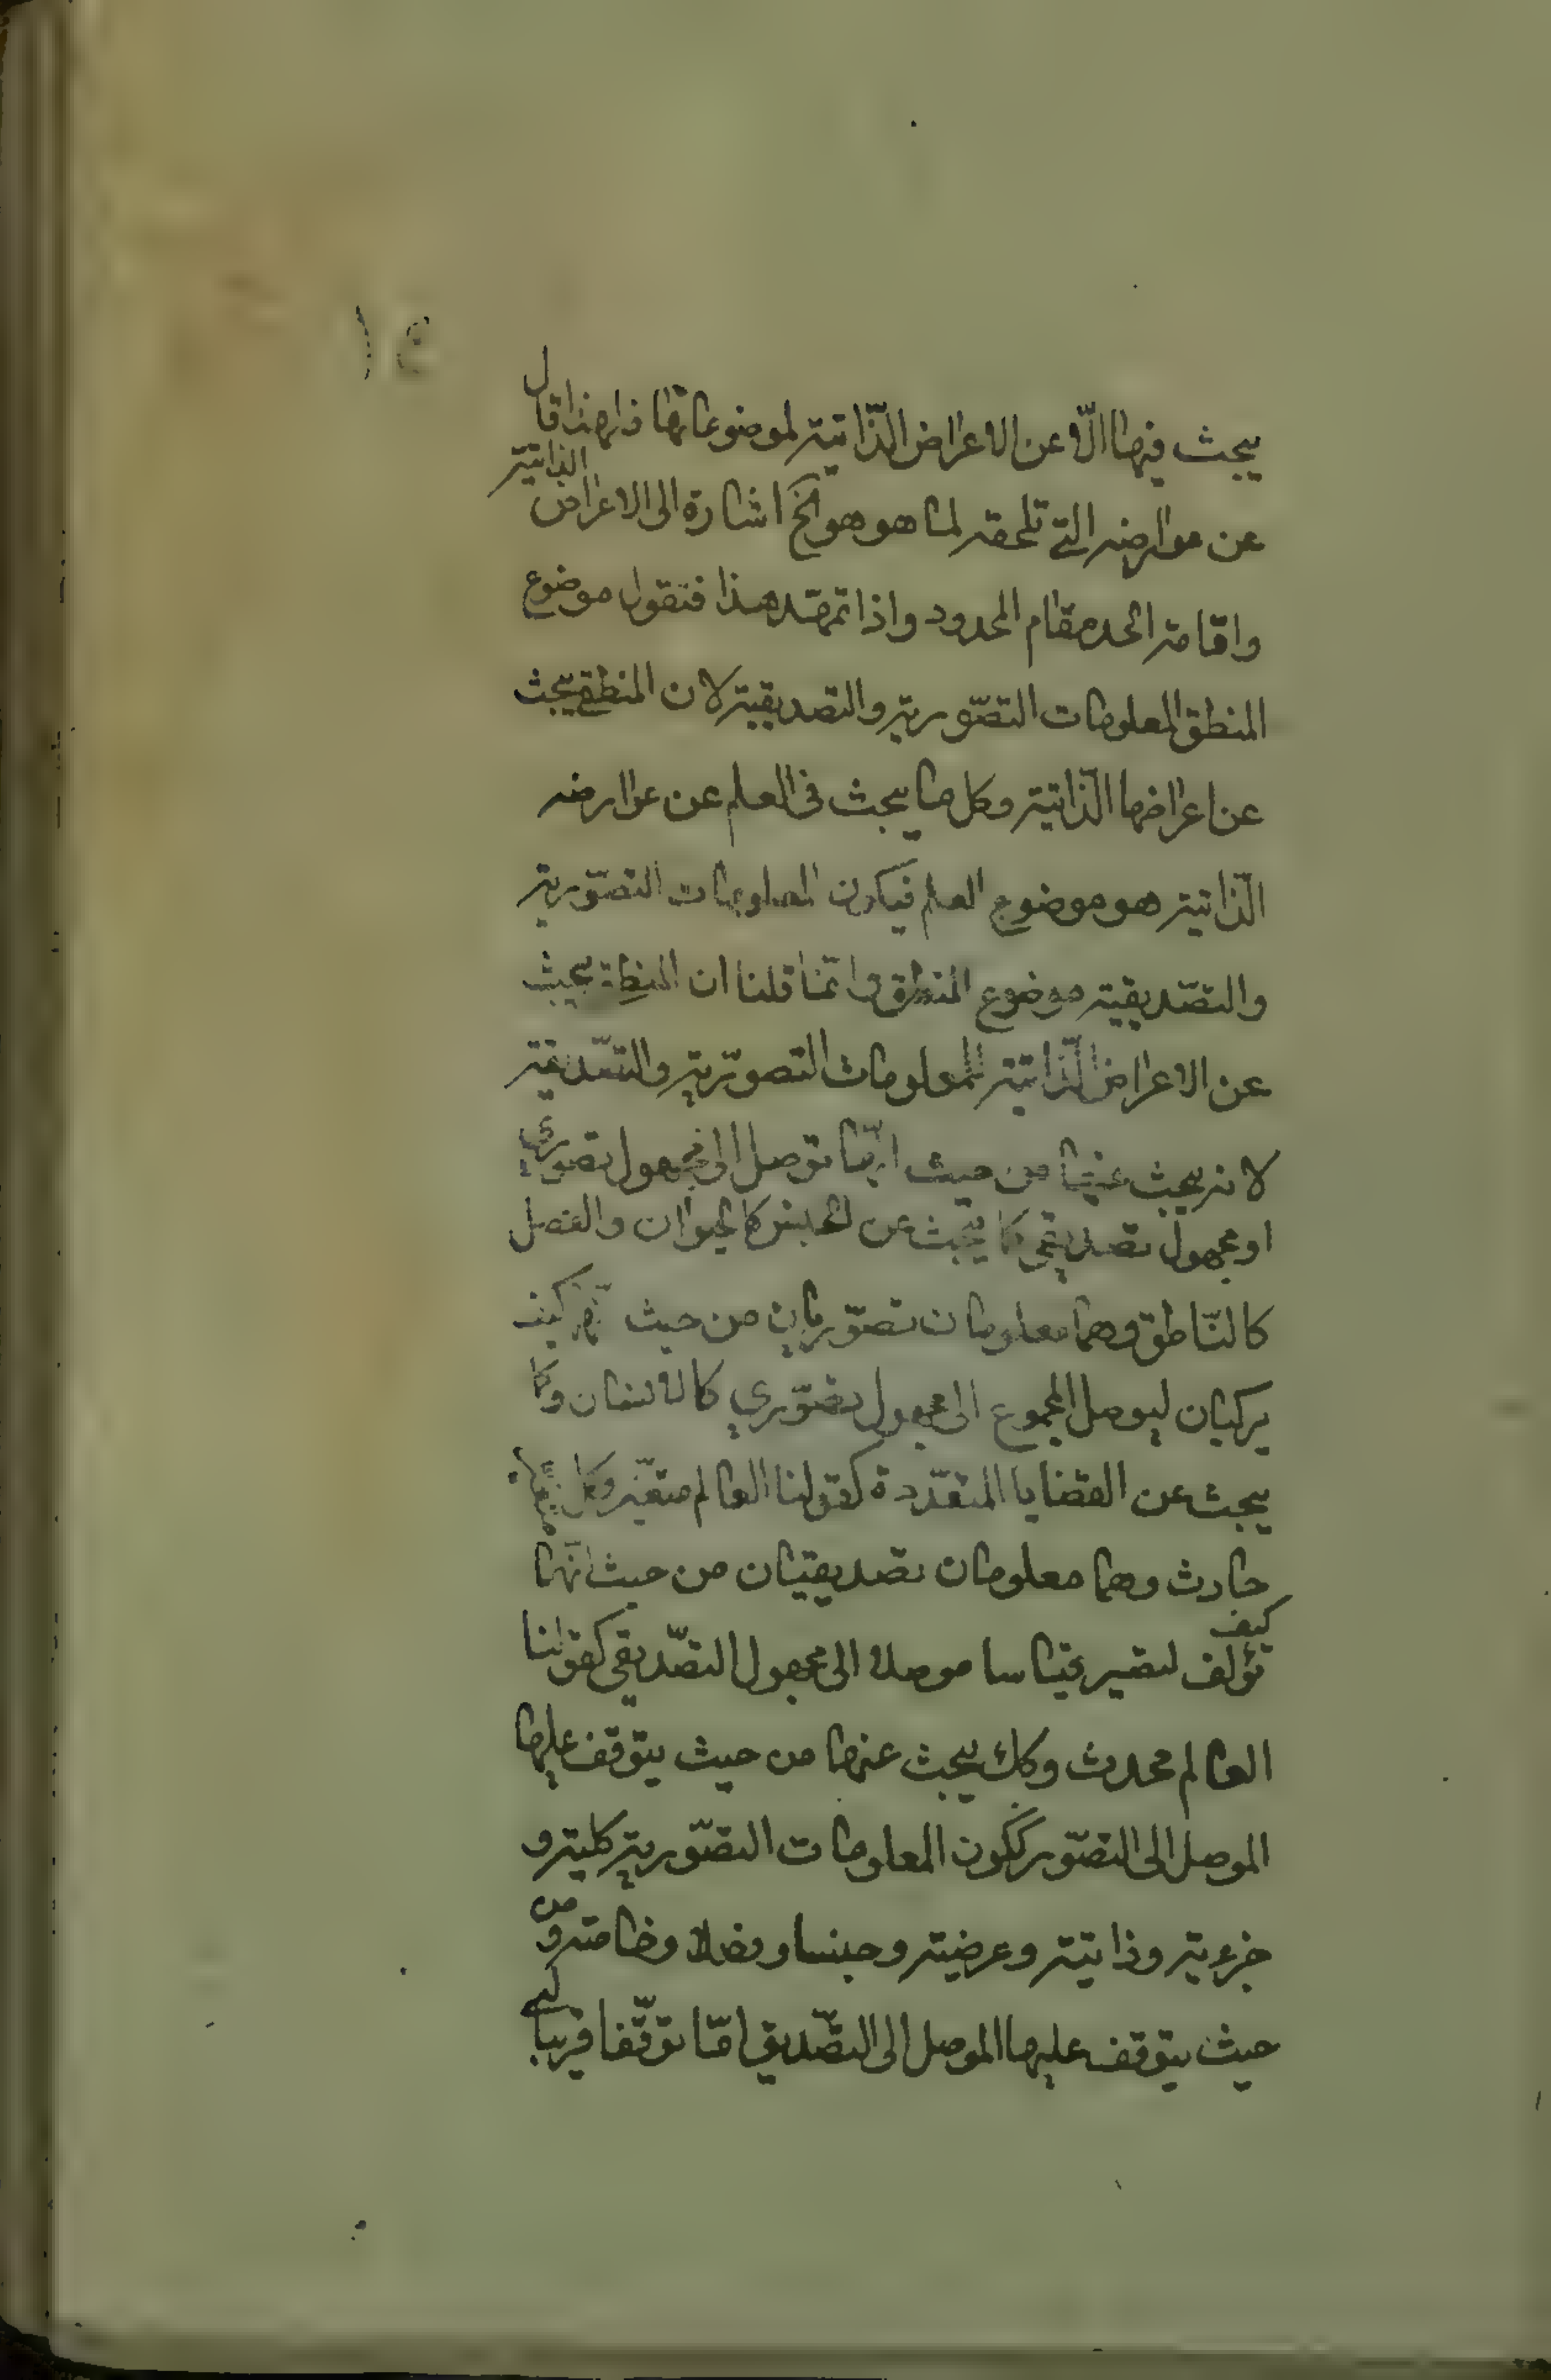 يبحث فيها الّا عن الاعراض الذّاتية لموضوعاتها فلهذا قال
عن عوارضه التي تلحقه لما هو هو الخ اشارة الى الاعراض الذاتية
واقامة الحد مقام المحدود واذا تمهّد هذا فنقول موضوع
المنطق المعلومات التصّورية والتصديقية لان المنطقي يبحث
عن اعراضها الذّاتية وكل ما يبحث فى العلم عن عوارضه
الذّاتية هو موضوع العلم فيكون المعلومات التصّورية
والتصّديقية موضوع المنطق وانّما قلنا ان المنطقي يبحث
عن الاعراض الذّاتية للمعلومات التصوّرية والتصّديقية
لانه يبحث عنها من حيث انّها توصل الى مجهول تصوري
او مجهول تصديقي كما يبحث عن الجنس كالحيوان والفصل
كالنّاطق وهما معلومان تصّوريان من حيث انّهما كيف
يركبان ليوصل المجموع الى مجهول تصّوري كالانسان وكما
يبحث عن القضايا المتعّددة كقولنا العالم متغيّر وكل متغيّر
حادث وهما معلومان تصديقيان من حيث انّهما
كيف تؤلف لتصير قياسا موصلا الى مجهول التصّديقي كقولنا
العالم محدث وكك يبحث عنها من حيث يتوقف عليها
الموصل الى التصّور ككون المعلومات التصّورية كلية و
جزءية وذاتية وعرضية وجنسا وفصلا وخاصة ومن
حيث يتوقف عليها الموصل الى التصّديق امّا توقّفا قريبا